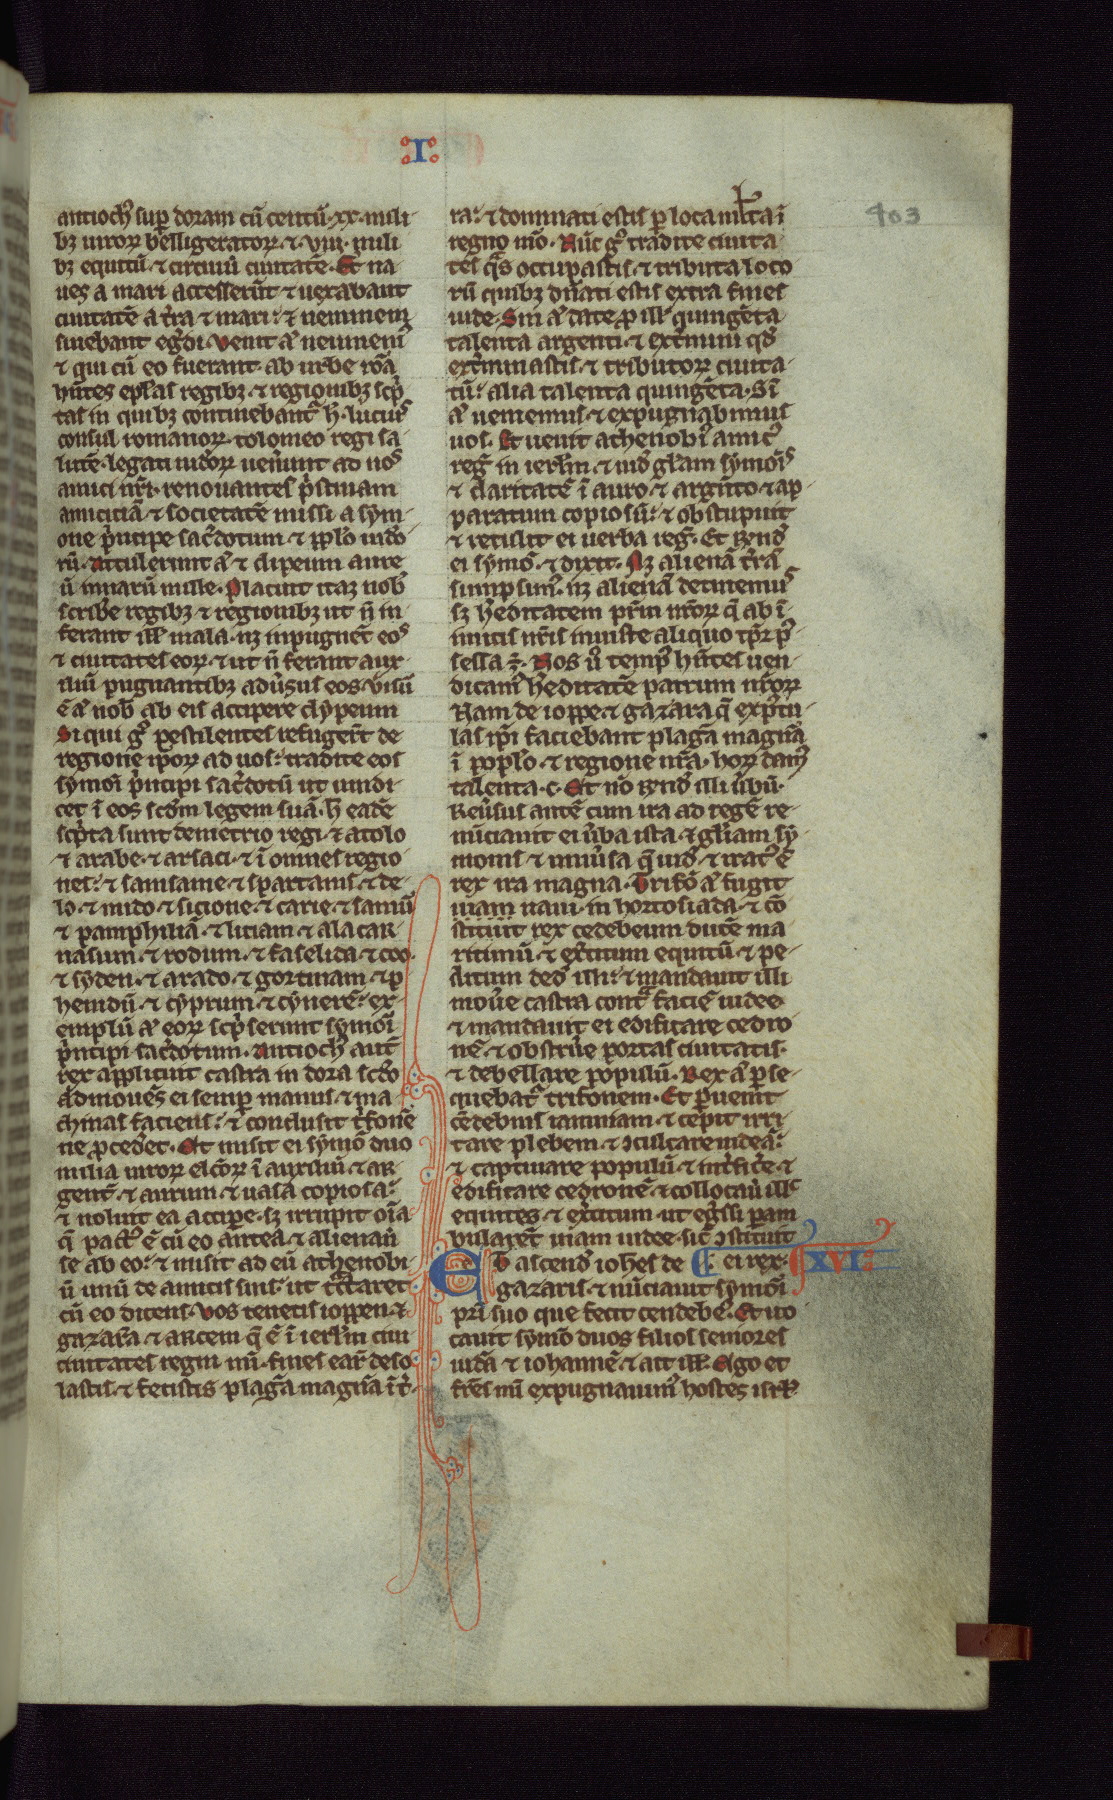 I
403
antiochꝰ suꝑ doram cū centū xx· mili
bꝫ uiroꝝ belligeratoꝝ· ⁊ viii· mili
bꝫ equitū· ⁊ circuiuit ciuitatē· Et na
ues a mari accesserūt ⁊ uexabant
ciuitatē a t̄ra ⁊ mari· ⁊ neminem
sinebant eg̃di· Venit aͣ neumeniꝰ
⁊ qui cū eo fuerant ab urbe roā
hñtes epl̃as regibꝫ ⁊ regionibꝫ scͥp
tas in quibꝫ continebantᷣ h̄· lucius
consul romanoꝝ· tolomeo regi sa
lutē· legati iudeoꝝ uen̄unt ad nos
amici nr̄i· renouantes pͥstinam
amiciciā ⁊ societatē missi a sym
one pͥncipe sac̄dotum ⁊ ppl̃o iudeo
rū· Attulerunt aͣ ⁊ clipeum aure
ū mnarū mille· Placuit itaꝫ nob̄
scribe regibꝫ ⁊ regionibꝫ ut ñ in
ferant ill̃ mala· nꝫ inpugnēt eos
⁊ ciuitates eoꝝ· ⁊ ut ñ ferant aux
iliū pugnantibꝫ aduͥsus eos· Visū
ē aͣ nob̄ ab eis accipere clypeum
Si qui gͦ pestilentes refuger̄t de
regione ip̄oꝝ ad uos· tradite eos
symoī pͥncipi sac̄dotū ut uindi
cet ī eos scd̃m legem suā· h̄ eadē
scͥpta sunt demetrio regi· ⁊ atolo
⁊ arabe· ⁊ arsaci· ⁊ ī omnes regio
nes· ⁊ samsame· ⁊ spartanis· ⁊ de
lo· ⁊ mido· ⁊ sicione· ⁊ carie· ⁊ samū
⁊ pamphiliā· ⁊ liciam· ⁊ alacar
nasum· ⁊ rodum· ⁊ faselida· ⁊ coo
⁊ syden· ⁊ arado· ⁊ gortinam· ⁊ p
heindū· ⁊ cyprum· ⁊ cynerē· ex
emplū aͣ eoꝝ scͥpserunt symoī
pͥncipi sac̄dotum· Antiochꝰ aut̄
rex applicuit castra in dora scd̃o
admouēs ei semꝑ manus· ⁊ ma
chinas faciens· ⁊ conclusit tͥfonē
ne ꝓced̄et· Et misit ei symō duo
milia uiroꝝ elc̄oꝝ ī auxiliū· ⁊ ar
gent̄ ⁊ aurum ⁊ uasa copiosa·
⁊ noluit ea accipe· sꝫ irrupit oīa
q̄ pactꝰ ē cū eo antea· ⁊ alienauͥ
se ab eo· ⁊ misit ad eū athenobi
ū unū de amicis suis· ut tͣctaret
cū eo dicens· Vos tenetis ioppen· ⁊
gazara ⁊ arcem q̄ ē ī ierl̃m ciui
ciuitates regni mī· fines eaꝝ deso
lastis· ⁊ fecistis plagā magnā ī t̄
ra· ⁊ dominati estis ꝑ loca ml̃ta ī
regno mō· Nūc gͦ tradite ciuita
tes qͣs occupastis· ⁊ tributa loco
rū quibꝫ dn̄ati estis extra fines
iude· Sin aͣ date ꝓ ill̃ quingēta
talenta argenti· ⁊ ext̄minii qd̄
ext̄minastis· ⁊ tributoꝝ ciuita
tū· alia talenta quingēta· Sī
aͣ ueniemus· ⁊ expugnabimus
uos· Et uenit athenobiꝰ amicꝰ
reg̃ in ierl̃m· ⁊ uid̄ gl̃am symoīs
⁊ claritatē ī auro· ⁊ argēto· ⁊ ap
paratum copiosū· ⁊ obstupuit
⁊ retulit ei uerba reg̃· Et rn̄d̄
ei symō· ⁊ dixit· Nꝫ alienā t̄rā
sumpsimꝰ· nꝫ alienā detinemus
sꝫ h̄editatem pr̄m nr̄oꝝ q̄ ab ī
imicis nr̄is iniuste aliquo tp̄r p̄
sessa ē· Nos uͦ tempꝰ hñtes uen
dicamꝰ h̄editatē patrum nr̄oꝝ
Nam de ioppe· ⁊ gazara q̄ expͦstu
las ip̄i faciebant plagā magnā
ī pop̄lo· ⁊ regione nr̄a· hoꝝ damꝰ
talenta· c· Et nō rn̄d̄ illi ūbū·
Reūsus autē cum ira ad regē re
nūciauit ei ūba ista· ⁊ gl̃iam sy
monis ⁊ uniūsa q̄ uid̄· ⁊ iratꝰ ē
rex ira magna· Trifō aͣ fugit
uiam naui· in hortosiada· ⁊ cō
stituit rex cedebeum ducē ma
ritimū· ⁊ ex̄citum equitū· ⁊ pe
ditum ded̄ illi· ⁊ mandauit illi
mouͤe castra contͣ faciē iudee
⁊ mandauit ei edificare cedro
nē· ⁊ obstrūe portas ciuitatis·
⁊ debellare populū· Rex aͣ ꝑse
quebatᷣ trifonem· Et ꝑuenit
cēdebius iamniam· ⁊ cepit irri
tare plebem· ⁊ ɔculcare iudeā·
⁊ captiuare populū· ⁊ int̄fic̄e· ⁊
edificare cedronē· ⁊ collocauͥ illͨ
equites· ⁊ ex̄citum· ut eg̃ssi ꝑam
bularet̄ uiam iudee· sic̄ ɔstituit
ei rex· XVI·
Et ascend̄ iohēs de
gazaris· ⁊ nūciauit symoī
pr̄i suo que fecit cendebꝰ· Et uo
cauit symō duos filios seniores
iudā ⁊ iohannē· ⁊ ait ill̃· Ego et
fr̄es mī expugnauimꝰ hostes isrl̃